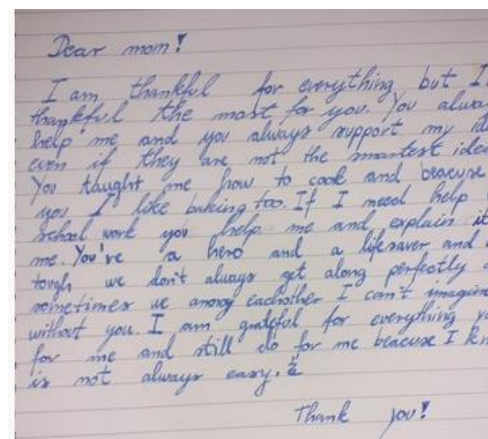 Dear mom!
I am thankful for everything but I
thankful the most for you. You
help me and you always support my
even if they are not the smartest
You taught me how to cook and beacuse
you I like baking too. If I need help
school work you help me and explain it
me. You're a hero and a lifesaver and
tough we don't always get along perfectly
sometimes we annoy eachother I can't imagine
without you. I am grateful for everything
for me and still do for me beacuse I
is not always easy.
Thank you!